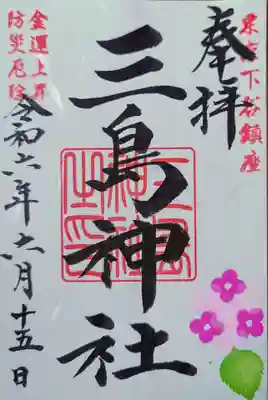 東京下谷鎮座
奉拝
三島神社
三島神社之印
金運上昇
防災厄除
令和六年六月十五日